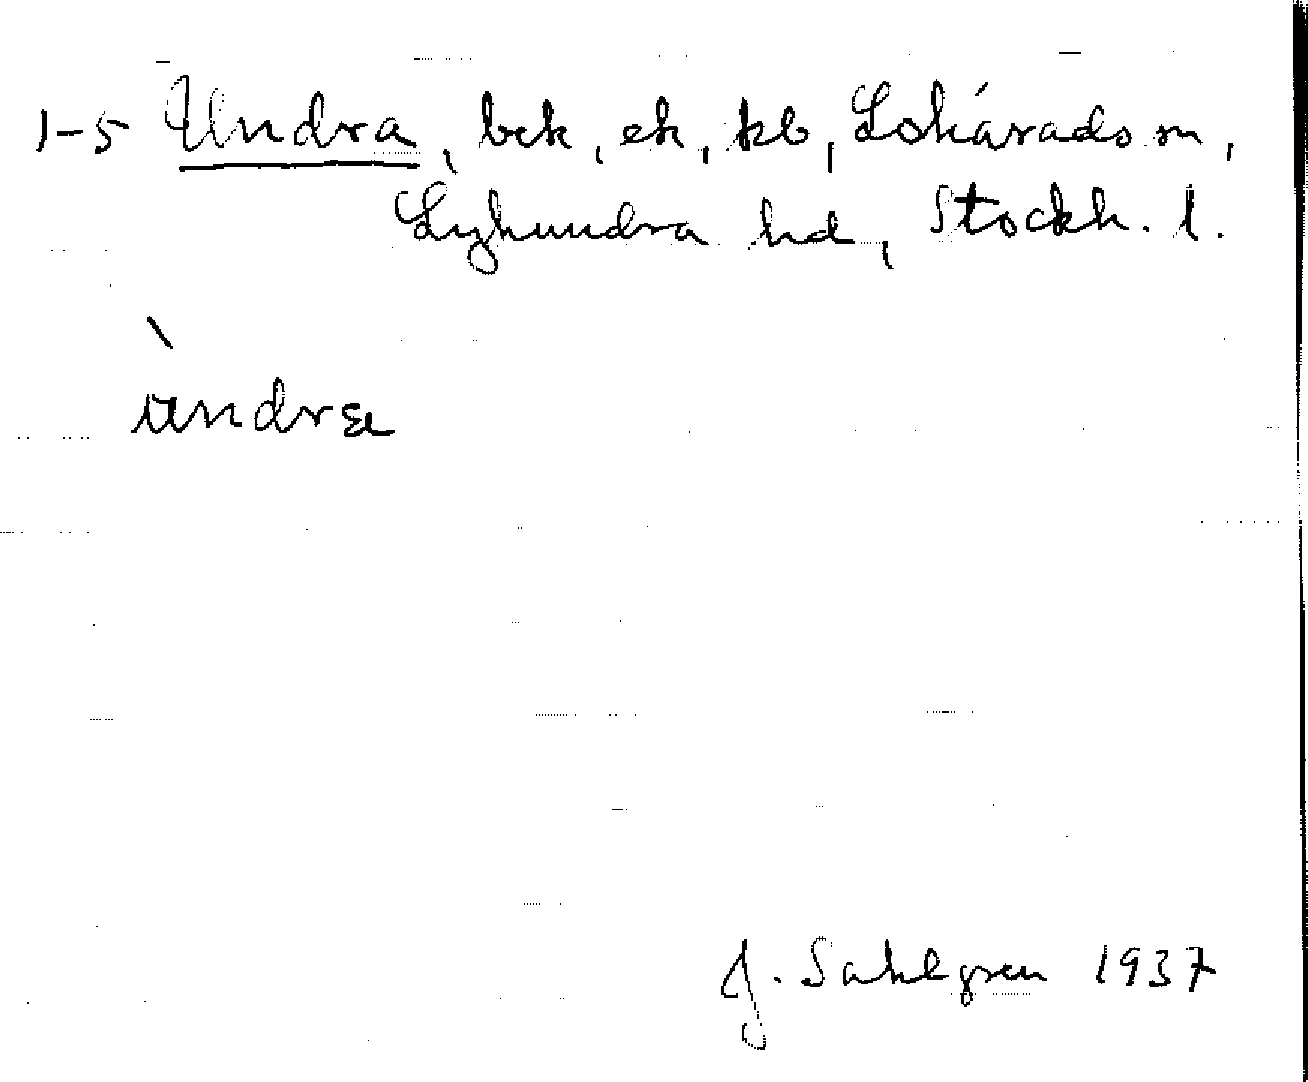 1-5 Undra, bck, ek, kb, Lohärads sn,
Lyhundra hd, Stockh. l.
J. Sahlgren 1937